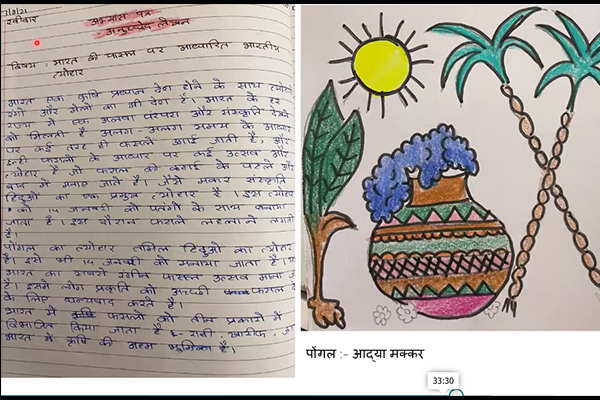 रविवार
अभ्यास पत्र
अनुच्छेद लेखन
विषय : भारत की फसल पर आधारित भारतीय
त्योहार
भारत एक कृषि प्रधान देश होने के साथ
रंगों और मेलों का भी देश है। भारत के हर
राज्य में एक अलग परंपरा और संस्कृति देखने
को मिलती है अलग-अलग मौसम के आधार
पर कई तरह की फसलें उगाई जाती है, और
इन्हीं फसलों के आधार पर कई उत्सव और
त्योहार है जो फसल की कटाई के
रूप में मनाए जाते है। जैसे मकर संक्रांति
हिंदुओं का एक प्रमुख त्योहार है। इस त्योहार
को 14 जनवरी को पतंगों के साथ मनाया
जाता है। इस दौरान फसलें लहलहाने लगती
है।
पोंगल का त्योहार तमिल हिंदुओं का त्योहार
है। इसे भी 14 जनवरी को मनाया जाता है।
भारत का सबसे रंगीन फसल उत्सव माना
है। इसमें लोग प्रकृति को अच्छी फसल
के लिए धन्यवाद करते है।
भारत में फसलों को तीन प्रकारों में
विभाजित किया जाता है :- रबी, खरीफ,
भारत में कृषि की अहम भूमिका है।
पोंगल :- आद्या मक्कर
33:30